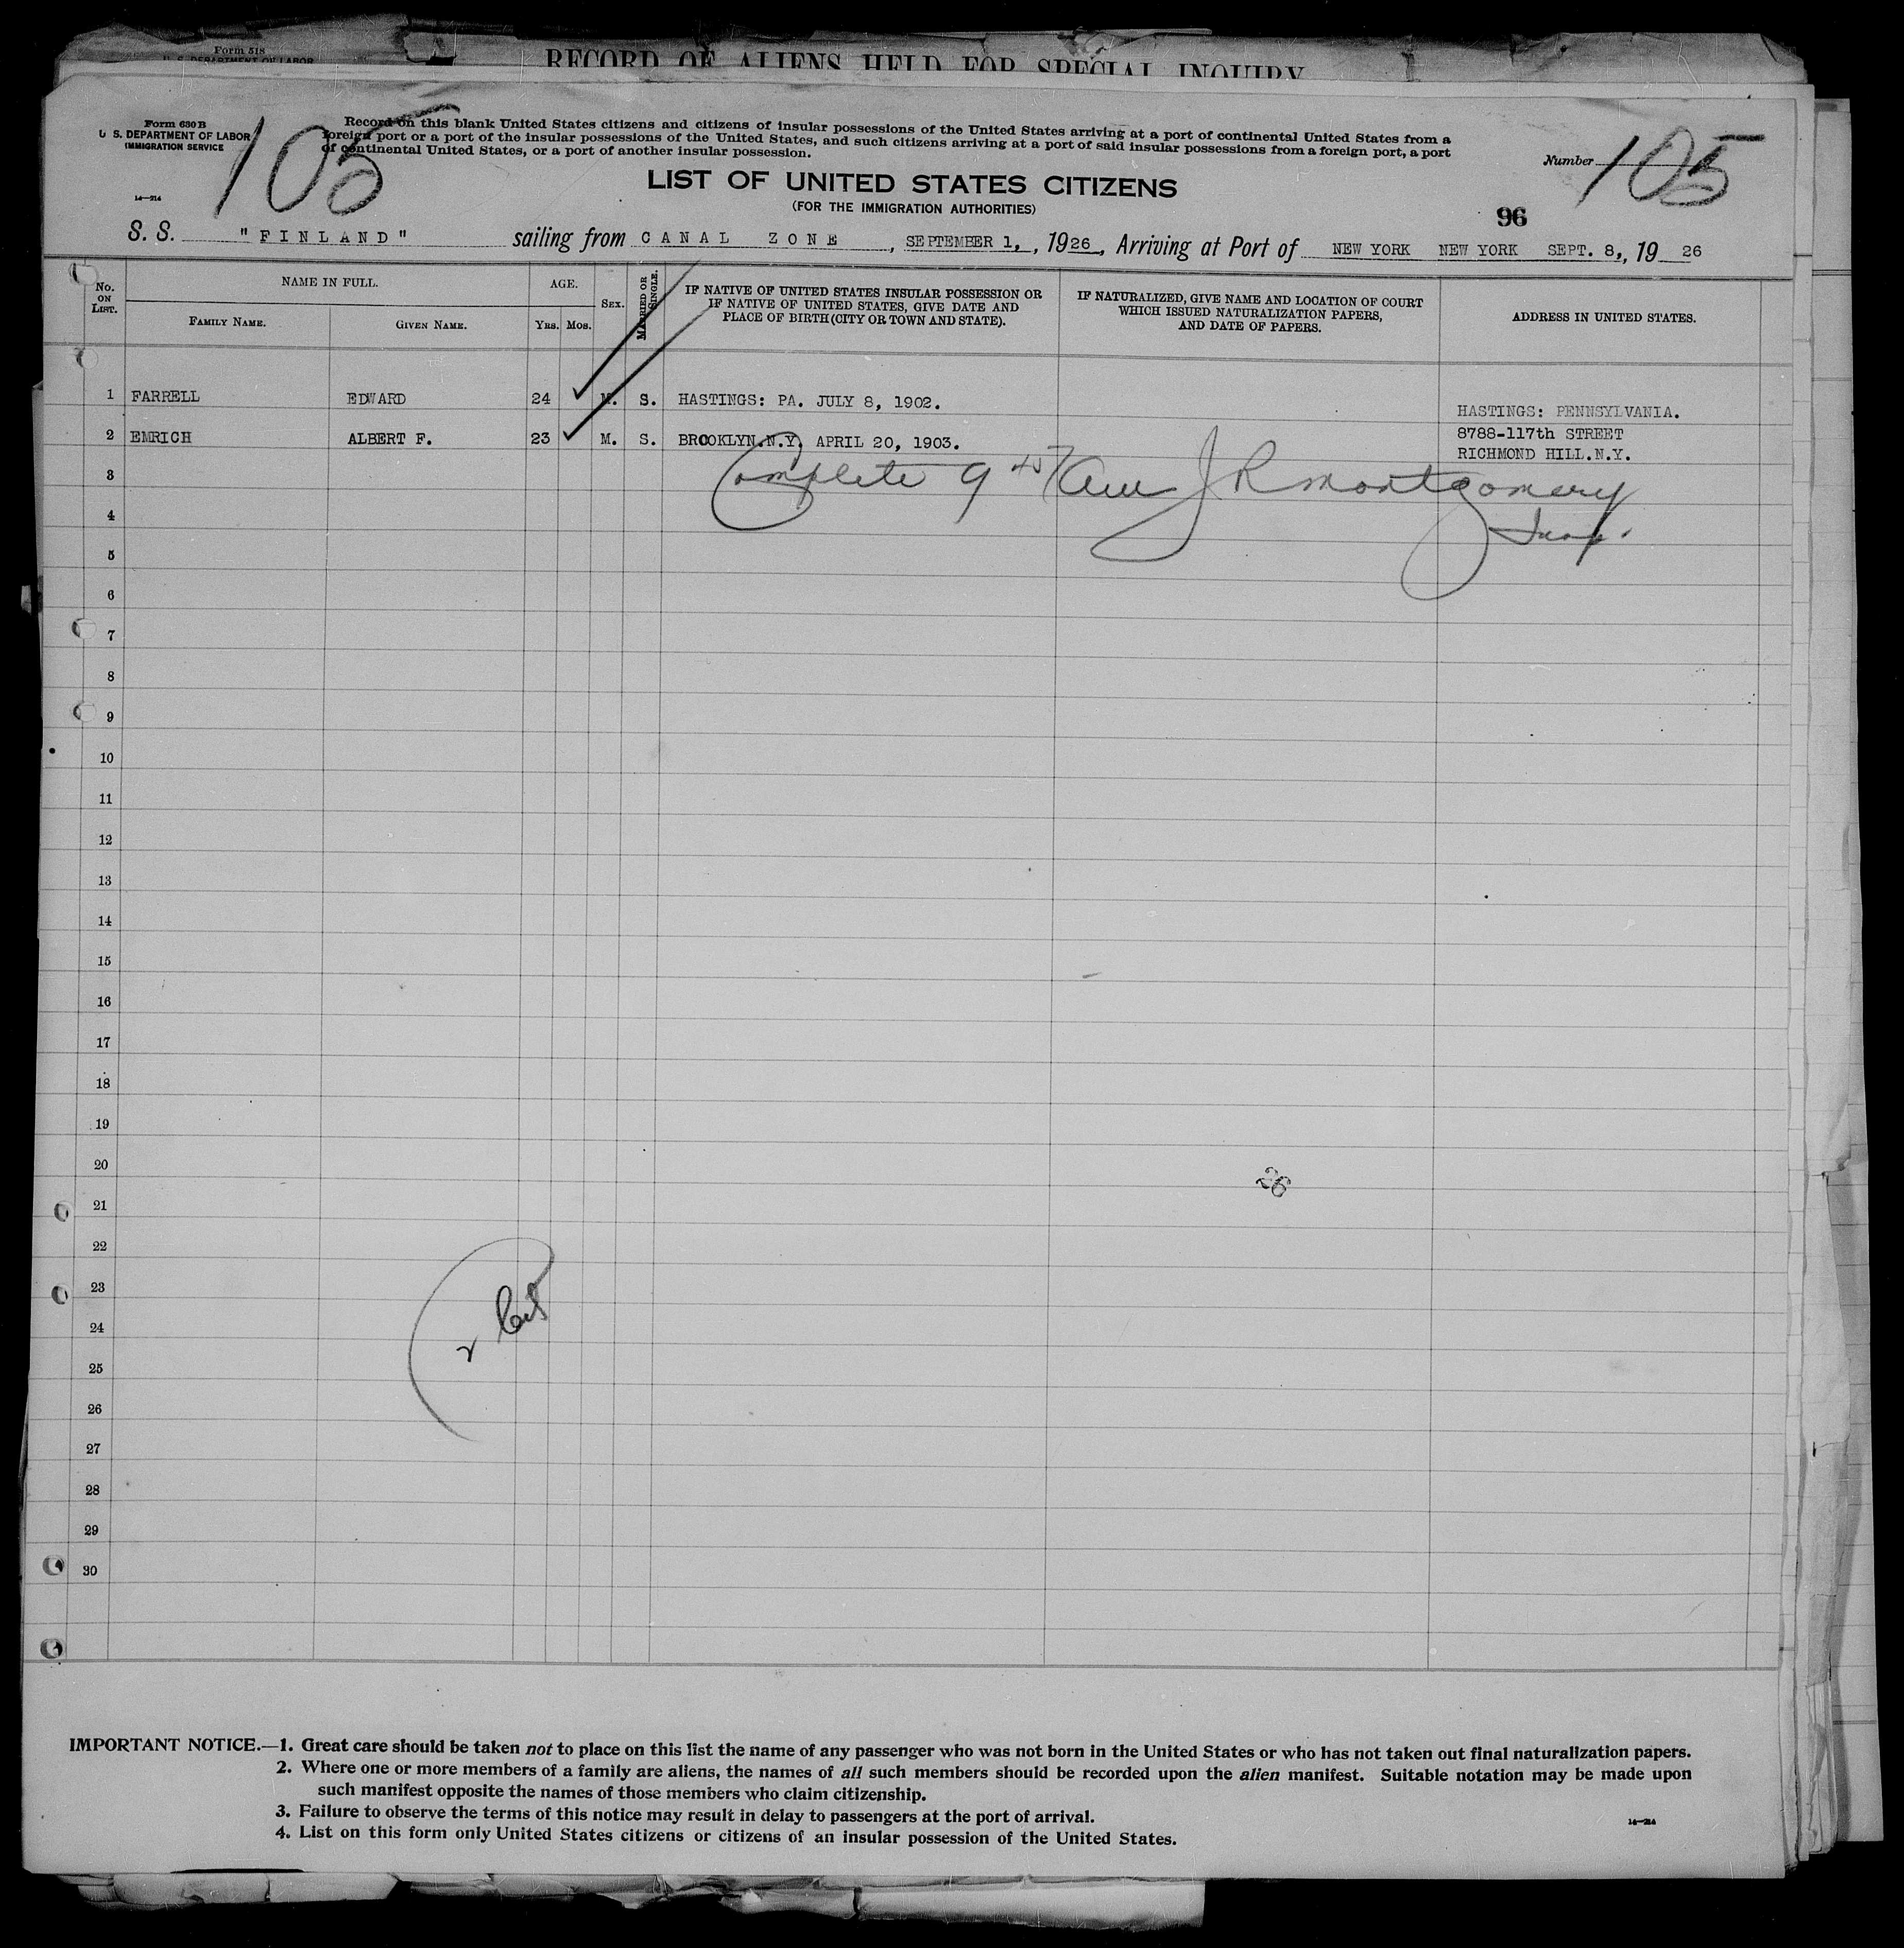 Form 518
U. S. DEPARTMENT OF LABOR
RECORD OF ALIENS HELD FOR SPECIAL INQUIRY
Form 630 B
U. S. DEPARTMENT OF LABOR
IMMIGRATION SERVICE
14—214
105
Record on this blank United States citizens and citizens of insular possessions of the United States arriving at a port of continental United States from a
foreign port or a port of the insular possessions of the United States, and such citizens arriving at a port of said insular possessions from a foreign port, a port
of continental United States, or a port of another insular possession.
Number 105
LIST OF UNITED STATES CITIZENS
(FOR THE IMMIGRATION AUTHORITIES)
96
S. S. "FINLAND" sailing from CANAL ZONE, SEPTEMBER 1, , 1926, Arriving at Port of NEW YORK NEW YORK SEPT. 8,, 19 26
No. ON LIST.
NAME IN FULL.
FAMILY NAME.
GIVEN NAME.
AGE.
YRS. MOS.
SEX.
MARRIED OR SINGLE.
IF NATIVE OF UNITED STATES INSULAR POSSESSION OR
IF NATIVE OF UNITED STATES, GIVE DATE AND
PLACE OF BIRTH (CITY OR TOWN AND STATE).
IF NATURALIZED, GIVE NAME AND LOCATION OF COURT
WHICH ISSUED NATURALIZATION PAPERS,
AND DATE OF PAPERS.
ADDRESS IN UNITED STATES.
1 FARRELL EDWARD 24 M. S. HASTINGS: PA. JULY 8, 1902. HASTINGS: PENNSYLVANIA.
2 EMRICH ALBERT F. 23 M. S. BROOKLYN.N.Y. APRIL 20, 1903. 8788-117th STREET
RICHMOND HILL.N.Y.
Complete 9 45 AM J R Montgomery
Insp.
3
4
5
6
7
8
9
10
11
12
13
14
15
16
17
18
19
20
26
21
22
23
24
25
26
27
28
29
30
IMPORTANT NOTICE.—1. Great care should be taken not to place on this list the name of any passenger who was not born in the United States or who has not taken out final naturalization papers.
2. Where one or more members of a family are aliens, the names of all such members should be recorded upon the alien manifest. Suitable notation may be made upon
such manifest opposite the names of those members who claim citizenship.
3. Failure to observe the terms of this notice may result in delay to passengers at the port of arrival.
4. List on this form only United States citizens or citizens of an insular possession of the United States.
14—214